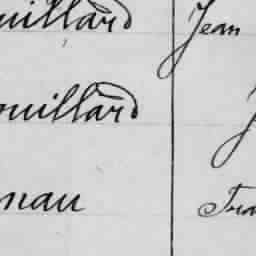 uillard Jean
ouillard J
nau Fra